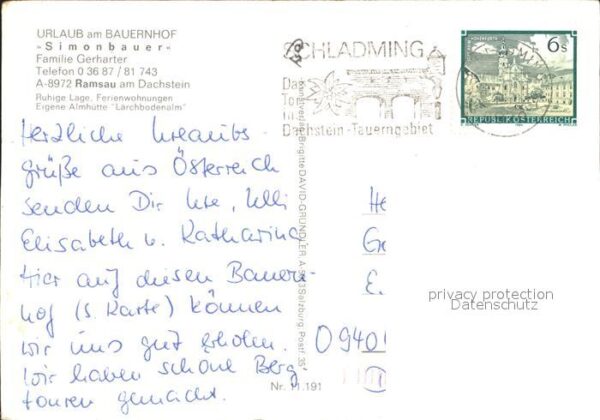 URLAUB am BAUERNHOF
»Simonbauer«
Familie Gerharter
Telefon 0 36 87 / 81 743
A-8972 Ramsau am Dachstein
Ruhige Lage, Ferienwohnungen
Eigene Almhütte "Lärchbodenalm"
SCHLADMING
Das
Dachstein-Tauerngebiet
6 S
REPUBLIK ÖSTERREICH
Herzliche Urlaubs-
grüße aus Österreich
senden Dir Ute, Ulli
Elisabeth u. Katharina
Hier auf diesen Bauern-
hof (s. Karte) können
wir uns gut erholen.
Wir haben schöne Berg
touren gemacht.
Kunstverlag Brigitte DAVID-GRÜNDLER A-5033 Salzburg Postf. 35
Nr. 11.191
He
Ge
E.
0940
privacy protection
Datenschutz